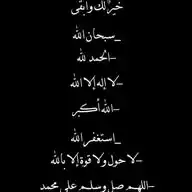 خير لك وأبقى
_سبحان الله
-الحمد لله
-لا إله إلا الله
-الله أكبر
_استغفر الله
-لا حول ولا قوة إلا بالله
-اللهم صل وسلم على محمد